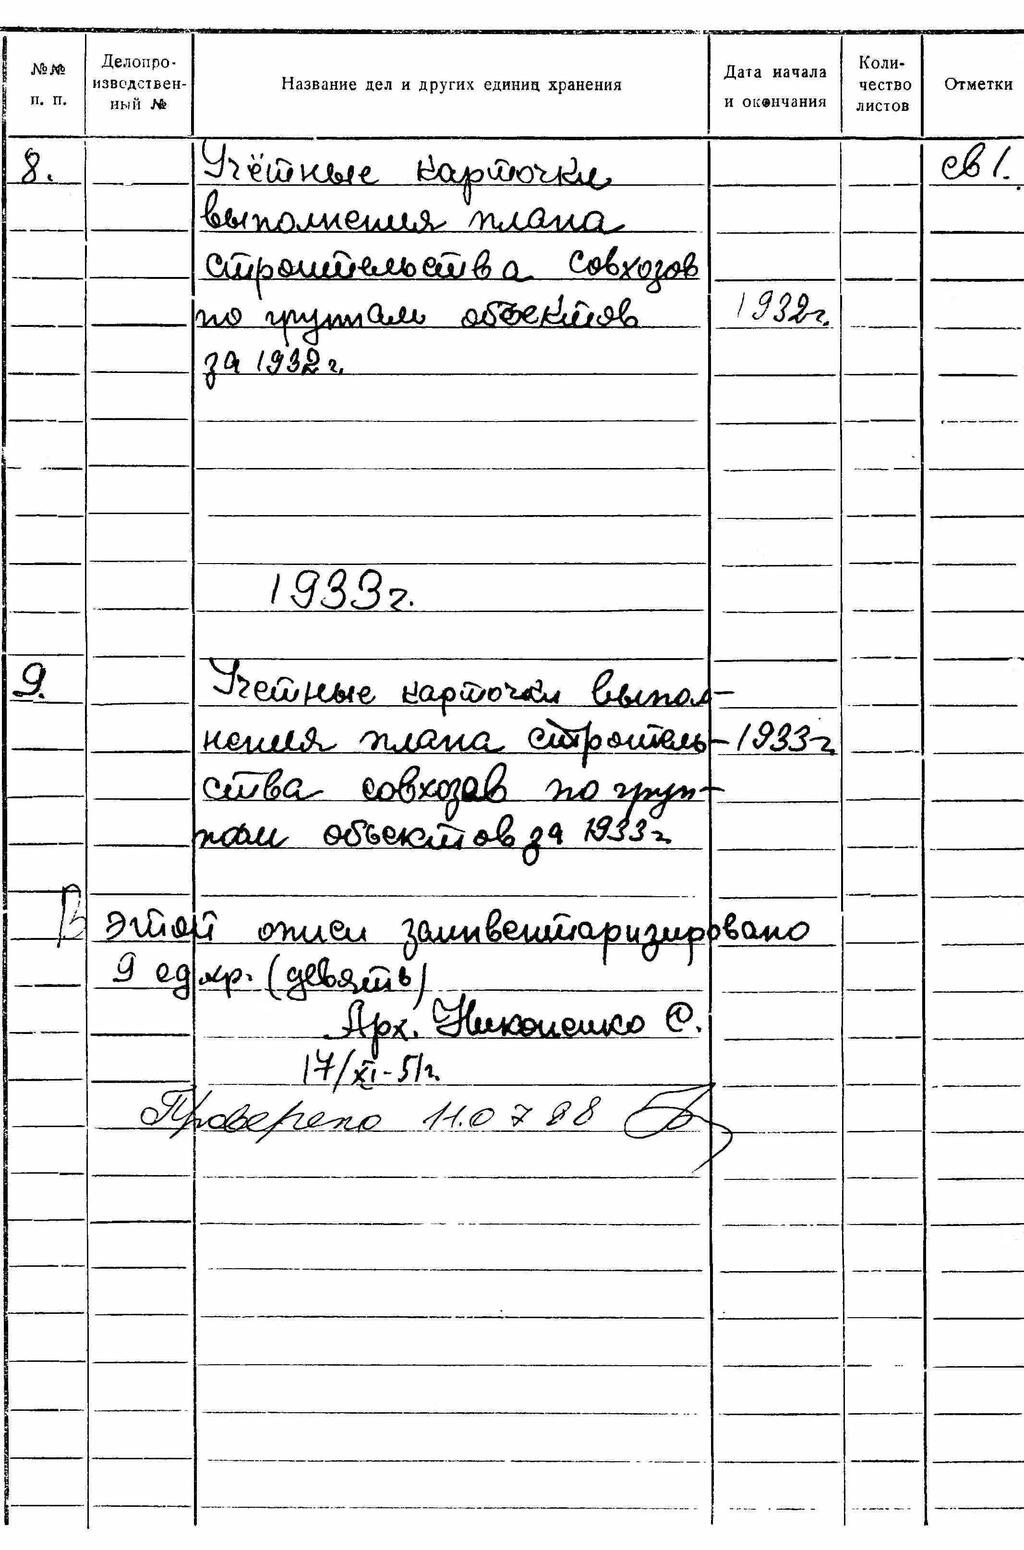 №№ п. п.
Делопро-
изводствен-
ный №
Название дел и других единиц хранения
Дата начала
и окончания
Коли-
чество
листов
Отметки
8. Учётные карточки св 1.
выполнения плана
строительства совхозов
по группам объектов 1932г.
за 1932г.
1933г.
9. Учетные карточки выпол-
нения плана строитель- 1933г
ства совхозов по груп-
пам объектов за 1933г
В этой описи заинвентаризировано
9 ед хр. (девять)
Арх. Никоненко С.
17/XI-51г.
Проверено 11.07.88